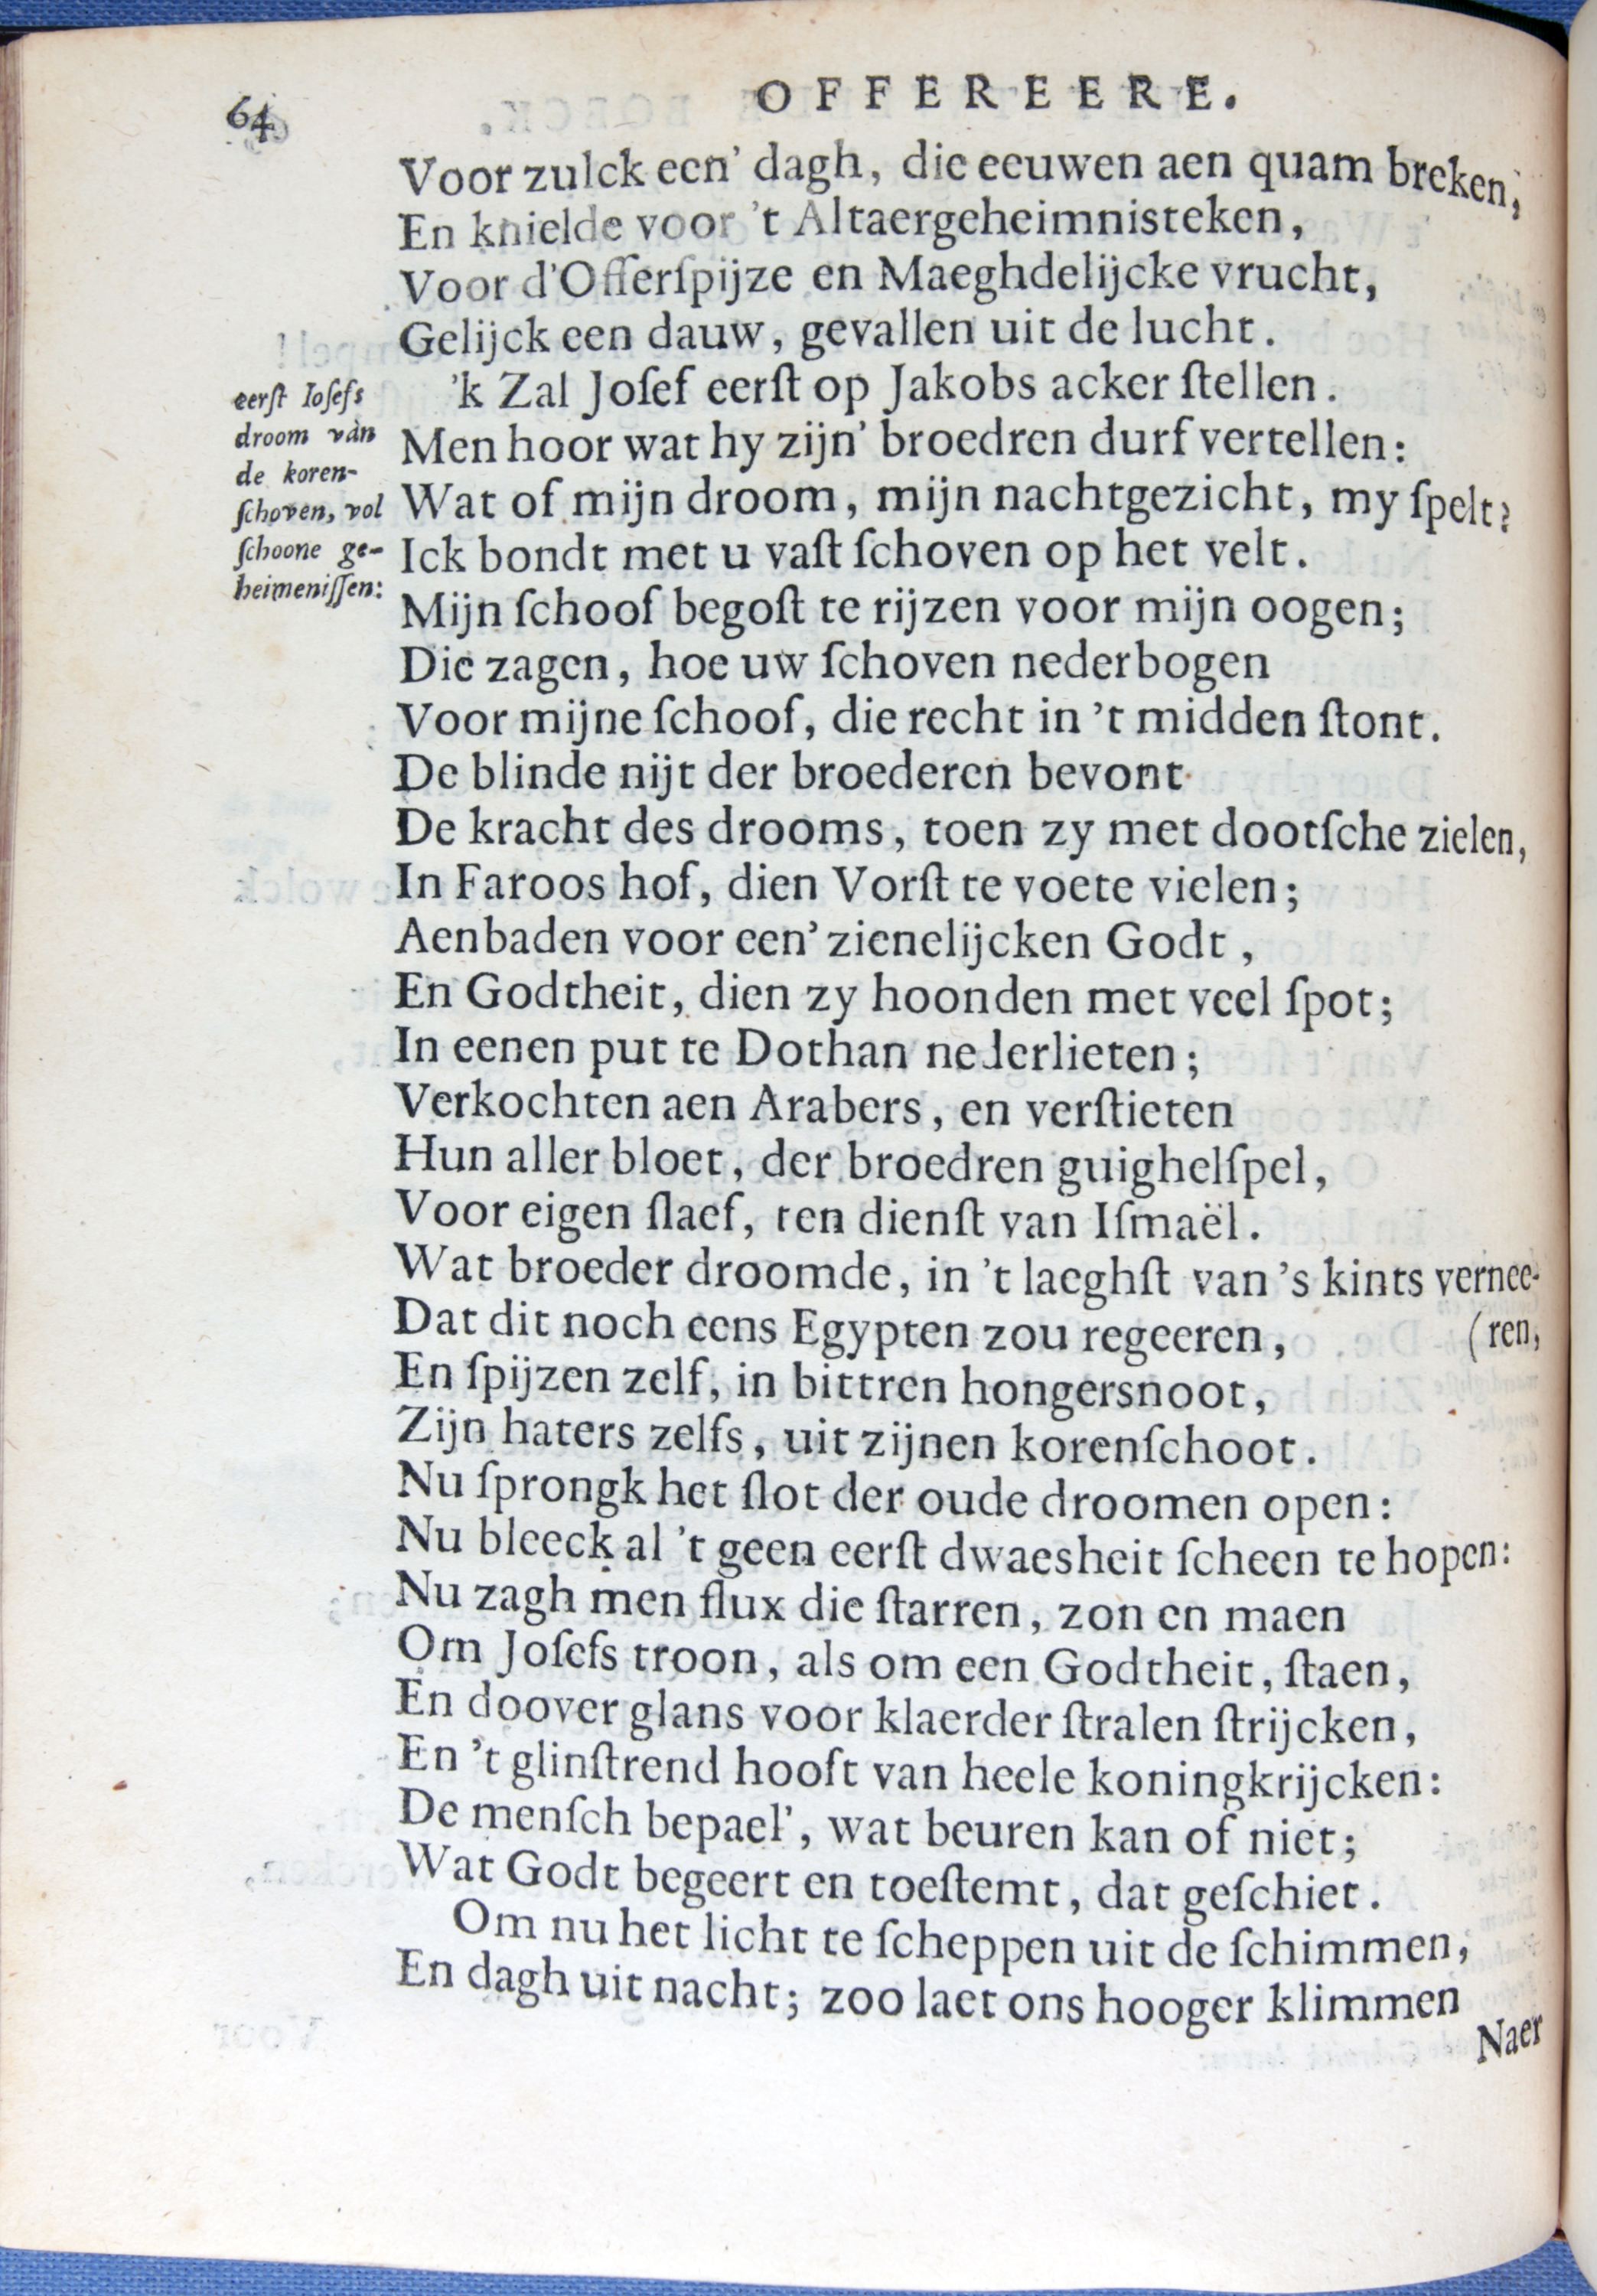 64
OFFEREERE.
Voor zulck een' dagh, die eeuwen aen quam breken,
En knielde voor 't Altaergeheimnisteken,
Voor d'Offerſpijze en Maeghdelijcke vrucht,
Gelijck een dauw, gevallen uit de lucht.
'k Zal Joſef eerſt op Jakobs acker ſtellen.
Men hoor wat hy zijn' broedren durf vertellen:
Wat of mijn droom, mijn nachtgezicht, my ſpelt?
Ick bondt met u vaſt ſchoven op het velt.
Mijn ſchoof begoſt te rijzen voor mijn oogen;
Die zagen, hoe uw ſchoven nederbogen
Voor mijne ſchoof, die recht in 't midden ſtont.
De blinde nijt der broederen bevont
De kracht des drooms, toen zy met dootſche zielen,
In Faroos hof, dien Vorſt te voete vielen;
Aenbaden voor een' zienelijcken Godt,
En Godtheit, dien zy hoonden met veel ſpot;
In eenen put te Dothan nederlieten;
Verkochten aen Arabers, en verſtieten
Hun aller bloet, der broedren guighelſpel,
Voor eigen ſlaef, ten dienſt van Iſmaël.
Wat broeder droomde, in 't laeghſt van 's kints vernee-
(ren,
Dat dit noch eens Egypten zou regeeren,
En ſpijzen zelf, in bittren hongersnoot,
Zijn haters zelfs, uit zijnen korenſchoot.
Nu ſprongk het ſlot der oude droomen open:
Nu bleeck al 't geen eerſt dwaesheit ſcheen te hopen:
Nu zagh men flux die ſtarren, zon en maen
Om Joſefs troon, als om een Godtheit, ſtaen,
En doover glans voor klaerder ſtralen ſtrijcken,
En 't glinſtrend hooft van heele koningkrijcken:
De menſch bepael', wat beuren kan of niet;
Wat Godt begeert en toeſtemt, dat geſchiet.
Om nu het licht te ſcheppen uit de ſchimmen,
En dagh uit nacht; zoo laet ons hooger klimmen
Naer
eerſt Ioſefs
droom van
de koren-
ſchoven, vol
ſchoone ge-
heimeniſſen: